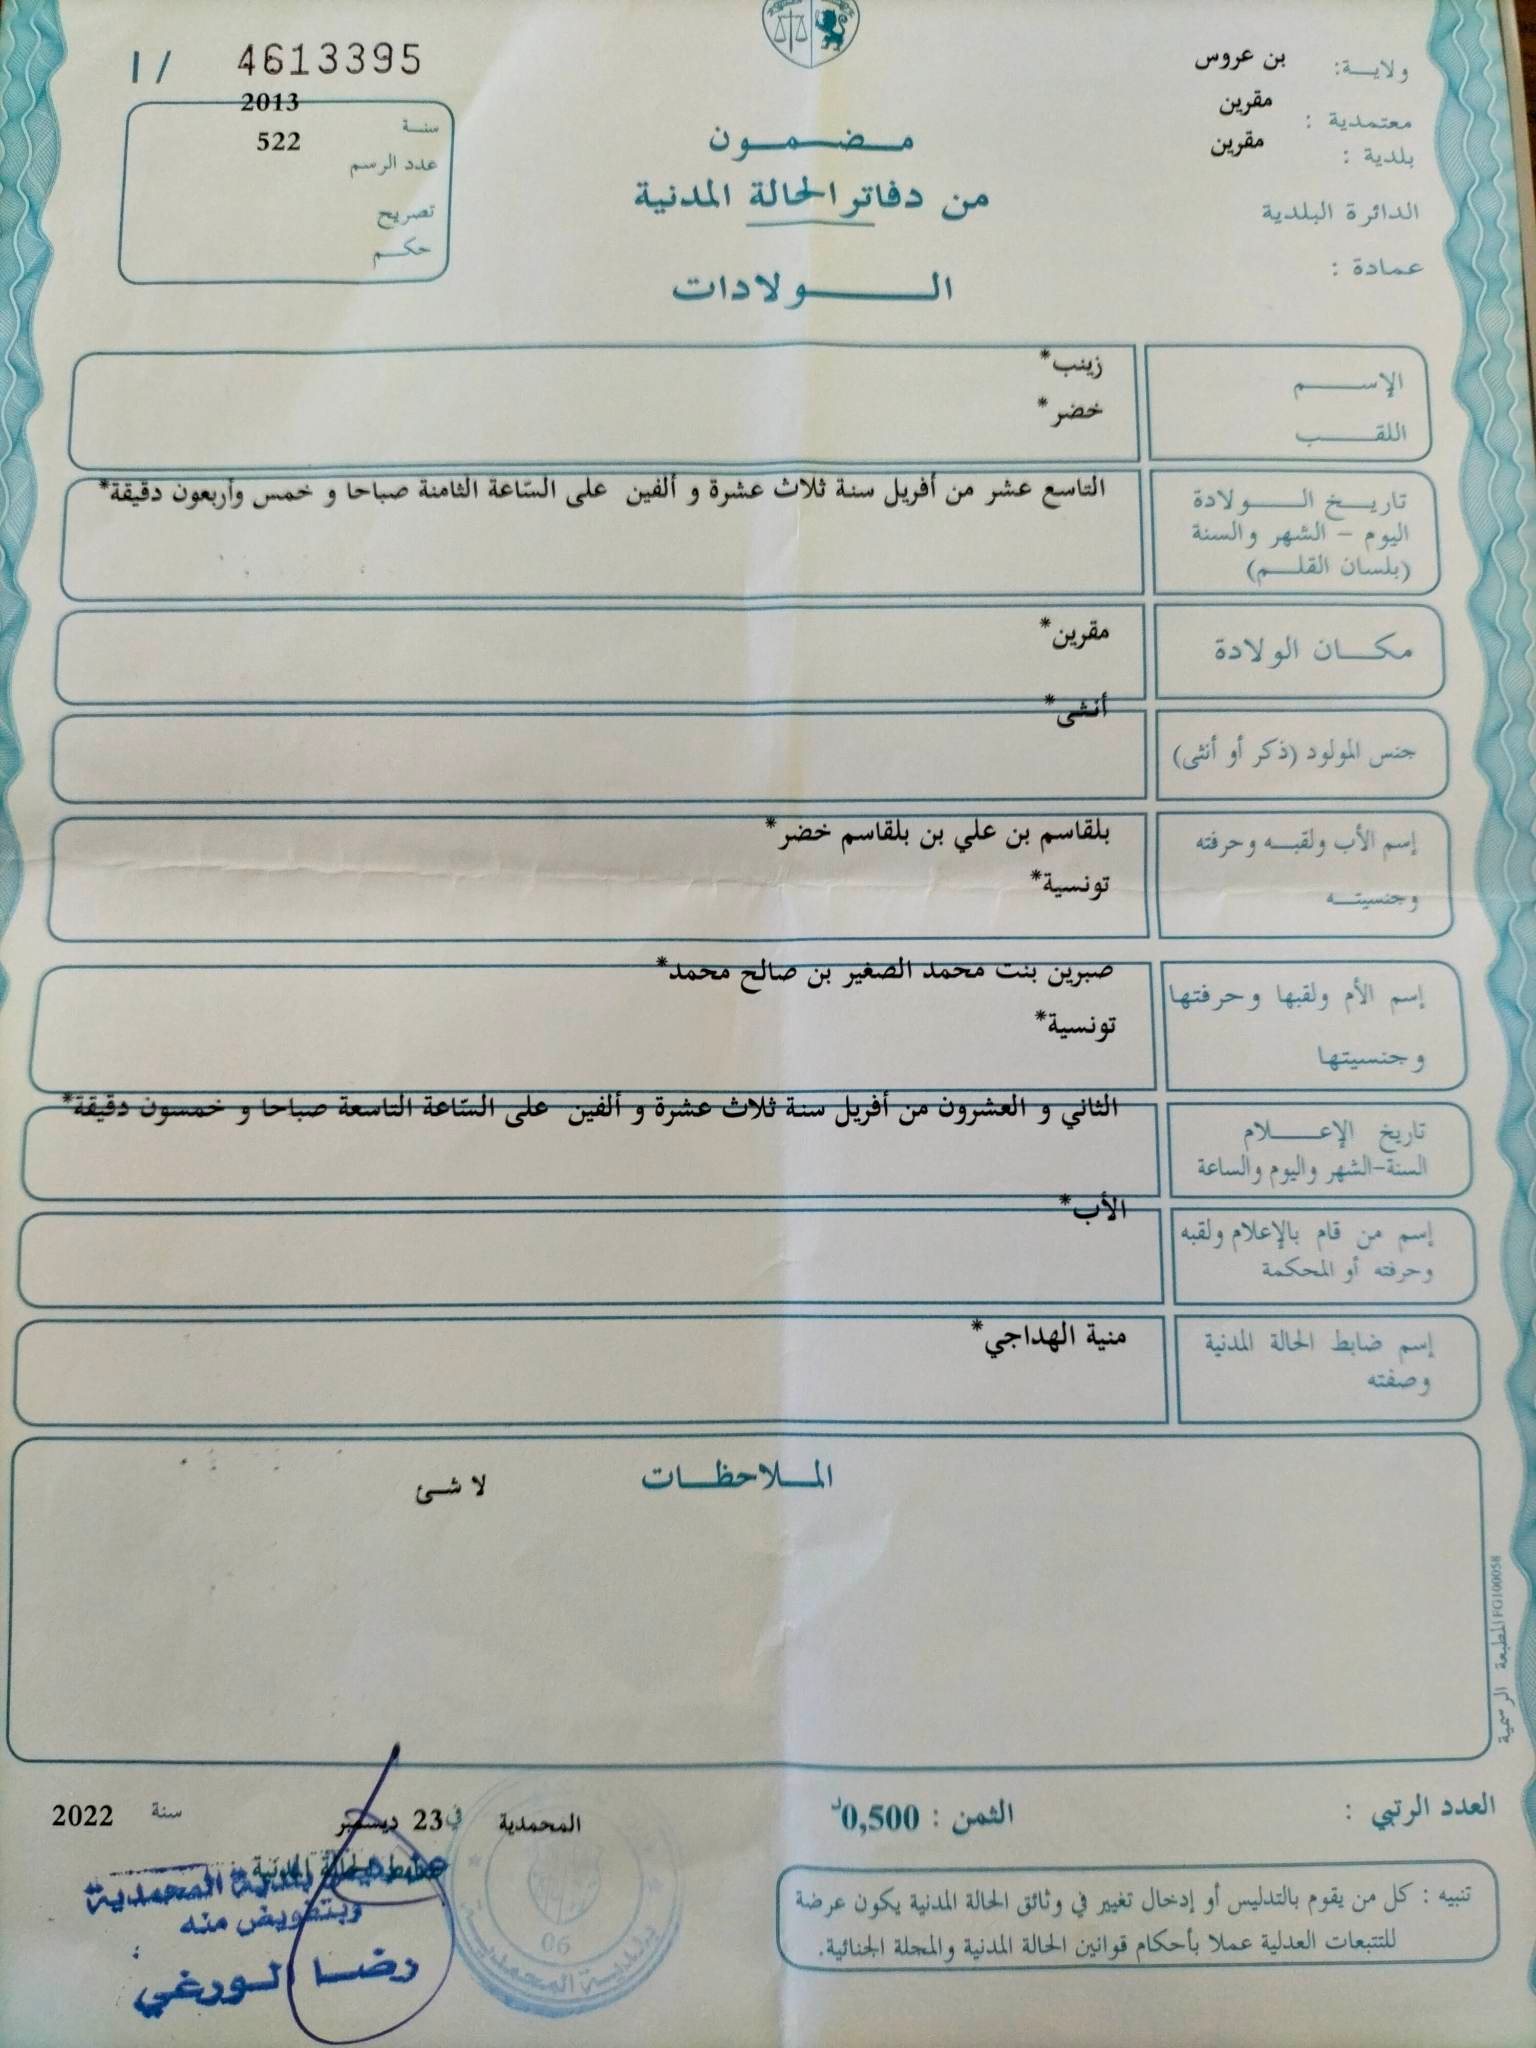 ولايــة: بن عروس
معتمدية : مقرين
بلدية : مقرين
الدائرة البلدية
عمادة :
مـضـمـون
من دفاتر الحالة المدنية
الـولادات
4613395 / I
سنـة 2013
عدد الرسم 522
تصريح
حكـم
الإســم زينب*
اللقـب خضر*
تاريـخ الـولادة التاسع عشر من أفريل سنة ثلاث عشرة و ألفين على السّاعة الثامنة صباحا و خمس وأربعون دقيقة*
اليوم - الشهر والسنة
(بلسان القلـم)
مكـان الولادة مقرين*
جنس المولود (ذكر أو أنثى) أنثى*
إسم الأب ولقبـه وحرفته بلقاسم بن علي بن بلقاسم خضر*
وجنسيتـه تونسية*
إسم الأم ولقبها وحرفتها صبرين بنت محمد الصغير بن صالح محمد*
وجنسيتها تونسية*
تاريخ الإعـلام الثاني و العشرون من أفريل سنة ثلاث عشرة و ألفين على السّاعة التاسعة صباحا و خمسون دقيقة*
السنة-الشهر واليوم والساعة
إسم من قام بالإعلام ولقبه الأب*
وحرفته أو المحكمة
إسم ضابط الحالة المدنية منية الهداجي*
وصفته
الملاحظـات لا شئ
المطبعة الرسمية FG100058
العدد الرتبي :
الثمن : 0,500د
المحمدية في 23 ديسمبر سنة 2022
ضابط الحالة المدنية
بلدية المحمدية
وبتفويض منه
رضا الورغي
بلدية المحمدية
06
تنبيه : كل من يقوم بالتدليس أو إدخال تغيير في وثائق الحالة المدنية يكون عرضة
للتتبعات العدلية عملا بأحكام قوانين الحالة المدنية والمجلة الجنائية.